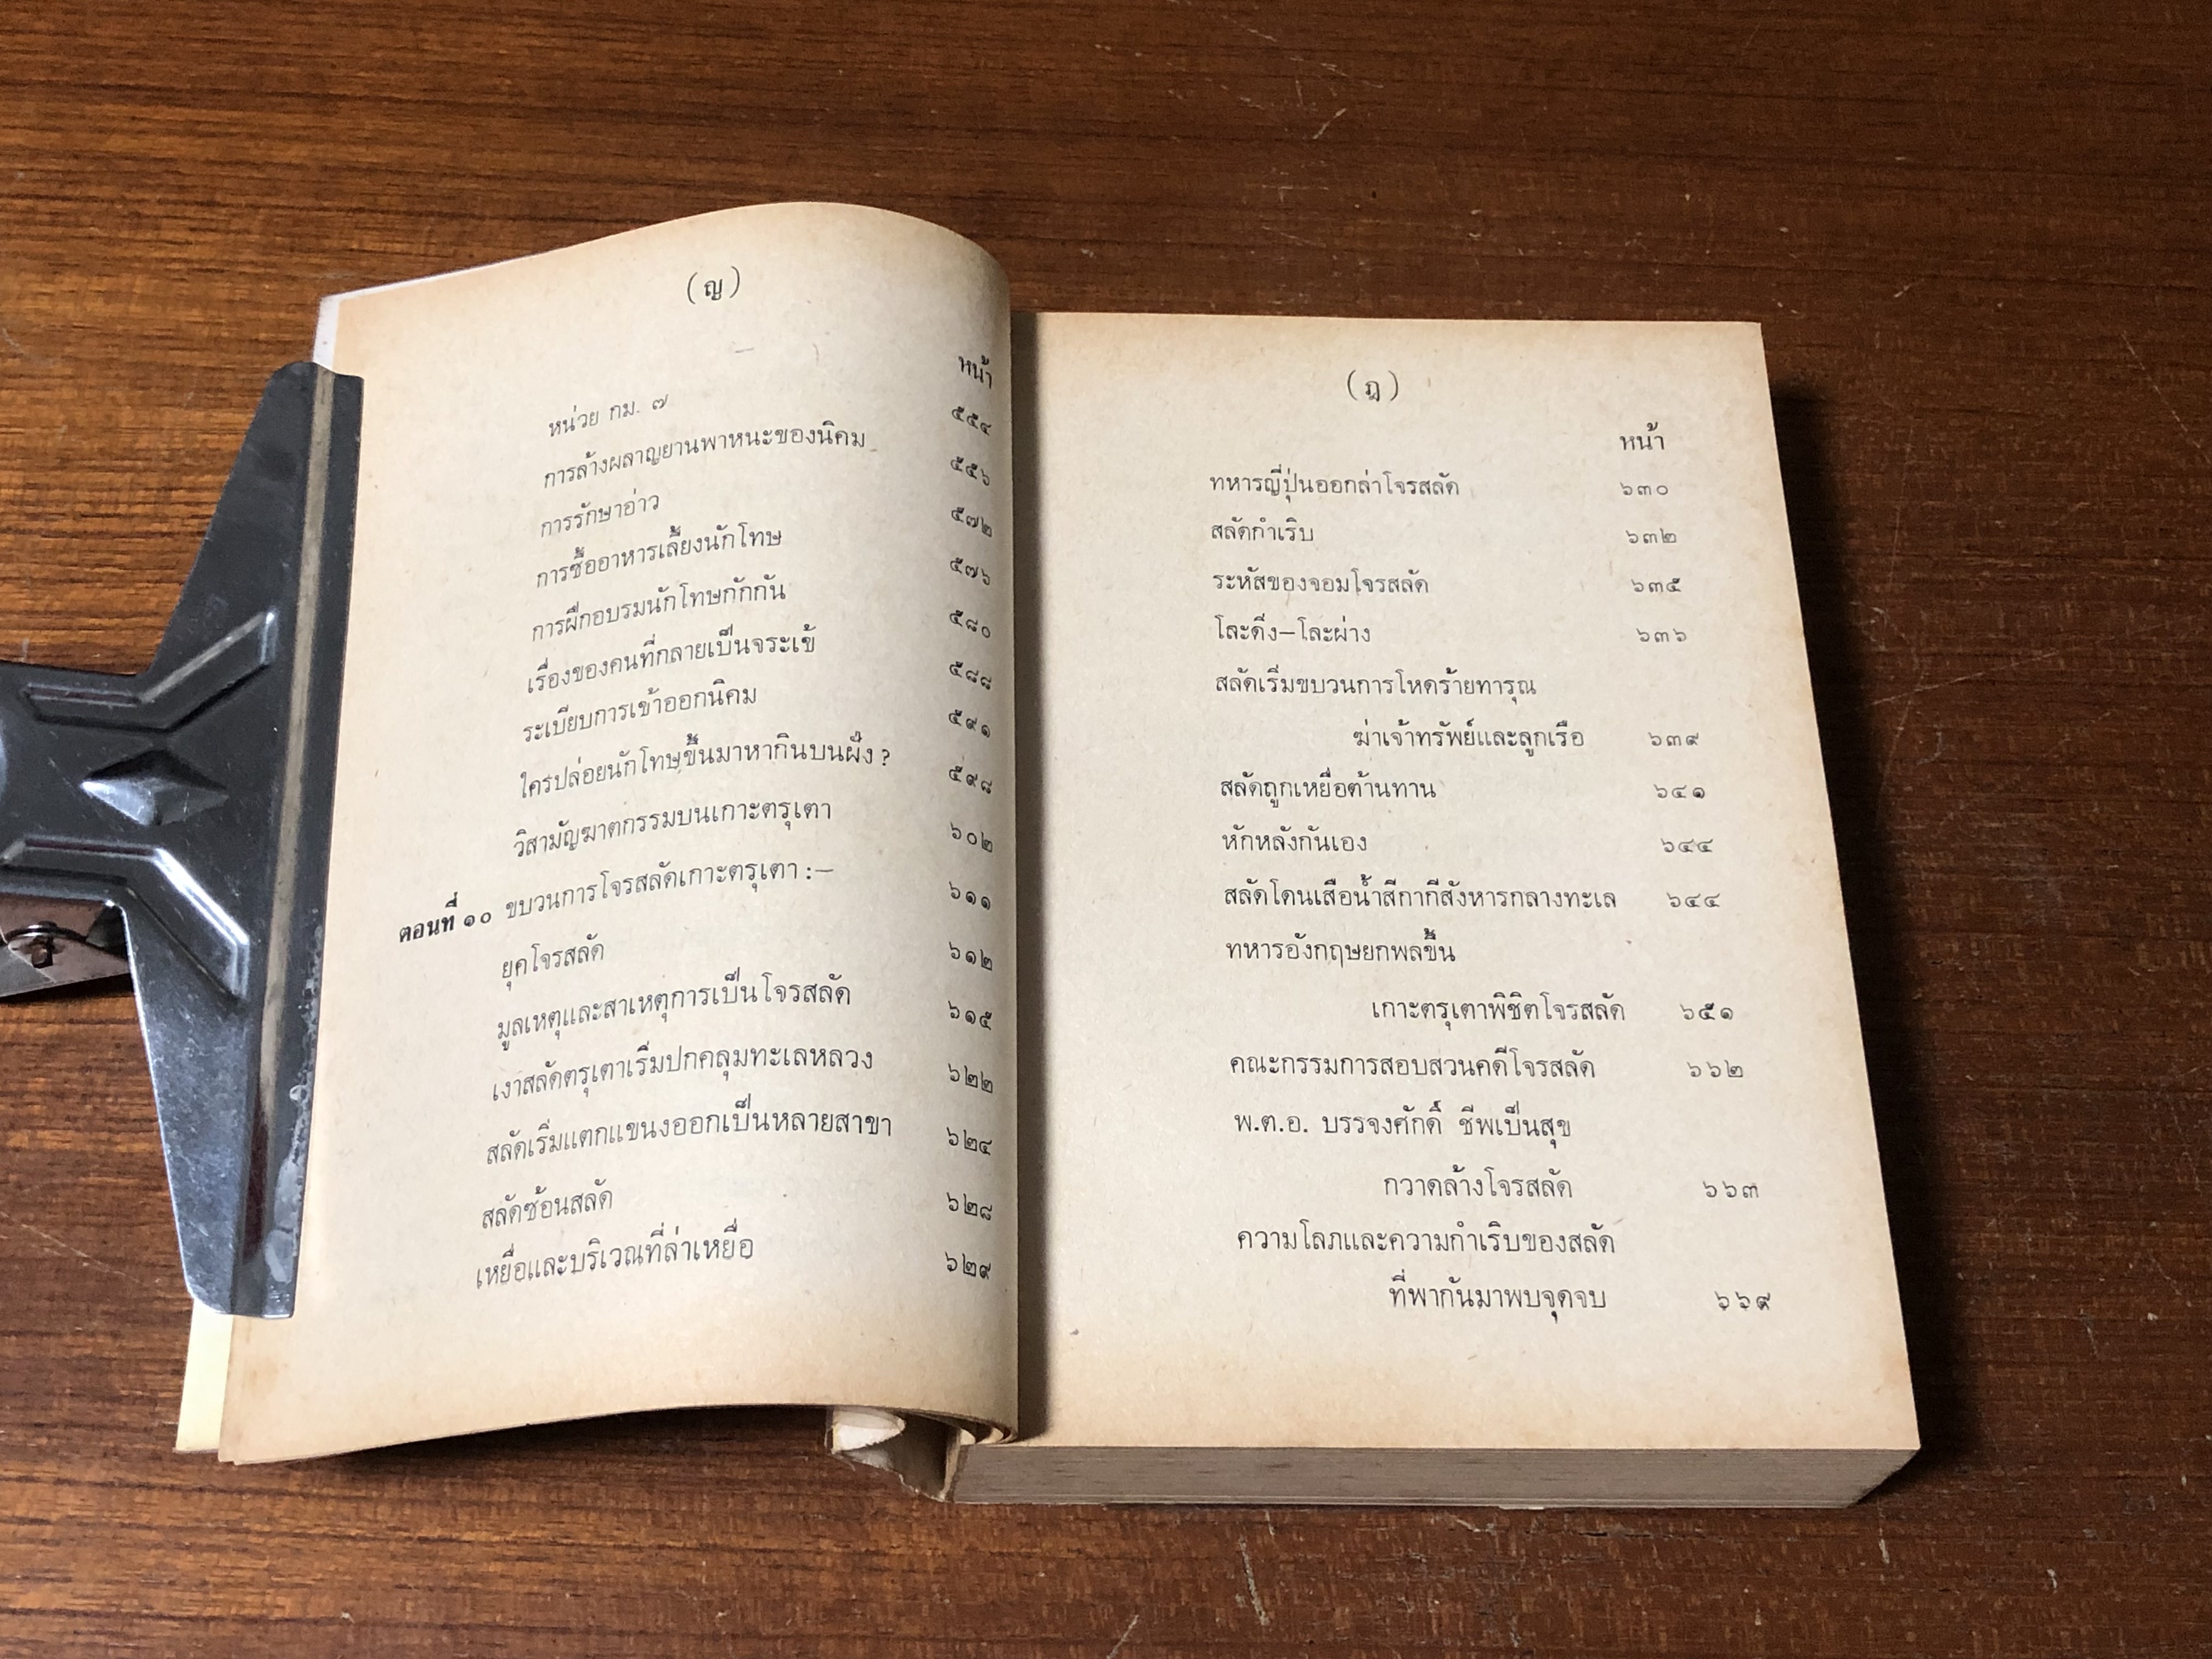 (ญ)
หน้า
หน่วย กม. ๗ ๕๕๔
การล้างผลาญยานพาหนะของนิคม ๕๕๖
การรักษาอ่าว ๕๗๒
การซื้ออาหารเลี้ยงนักโทษ ๕๗๖
การฝึกอบรมนักโทษกักกัน ๕๘๐
เรื่องของคนที่กลายเป็นจระเข้ ๕๘๘
ระเบียบการเข้าออกนิคม ๕๙๑
ใครปล่อยนักโทษขึ้นมาหากินบนฝั่ง ? ๕๙๘
วิสามัญฆาตกรรมบนเกาะตรุเตา ๖๐๒
ตอนที่ ๑๐ ขบวนการโจรสลัดเกาะตรุเตา :— ๖๑๑
ยุคโจรสลัด ๖๑๒
มูลเหตุและสาเหตุการเป็นโจรสลัด ๖๑๕
เงาสลัดตรุเตาเริ่มปกคลุมทะเลหลวง ๖๒๒
สลัดเริ่มแตกแขนงออกเป็นหลายสาขา ๖๒๔
สลัดซ้อนสลัด ๖๒๘
เหยื่อและบริเวณที่ล่าเหยื่อ ๖๒๙
(ฎ)
หน้า
ทหารญี่ปุ่นออกล่าโจรสลัด ๖๓๐
สลัดกำเริบ ๖๓๒
ระหัสของจอมโจรสลัด ๖๓๕
โละดึง—โละผ่าง ๖๓๖
สลัดเริ่มขบวนการโหดร้ายทารุณ
ฆ่าเจ้าทรัพย์และลูกเรือ ๖๓๙
สลัดถูกเหยื่อต้านทาน ๖๔๑
หักหลังกันเอง ๖๔๔
สลัดโดนเสือน้ำสีกากีสังหารกลางทะเล ๖๔๔
ทหารอังกฤษยกพลขึ้น
เกาะตรุเตาพิชิตโจรสลัด ๖๕๑
คณะกรรมการสอบสวนคดีโจรสลัด ๖๖๒
พ.ต.อ. บรรจงศักดิ์ ชีพเป็นสุข
กวาดล้างโจรสลัด ๖๖๓
ความโลภและความกำเริบของสลัด
ที่พากันมาพบจุดจบ ๖๖๙